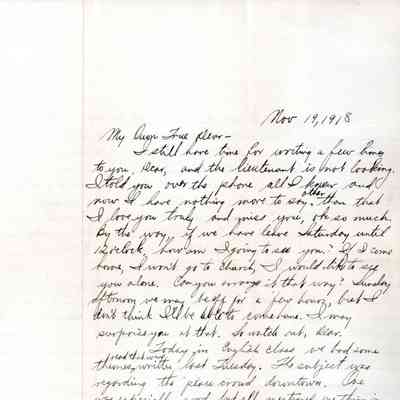 Nov 19, 1918
My Own True Dear –
I still have time for writing a few lines
to you, Dear, and the lieutenant is not looking.
I told you over the phone all I knew and
now I have nothing more to say, other than that
I love you truly and miss you, oh so much.
By the way, if we have leave Saturday until
12 o'clock, how am I going to see you? If I come
home, I won't go to church, I would like to see
you alone. Can you arrange it that way? Sunday
afternoon we may be off for a few hours, but I
don't think I'll be able to come home. I may
surprise you at that. So watch out, dear.
Today in English class we had some
themes read that were written last Tuesday. The subject was
regarding the peace crowd downtown. One
was especially good, but all mentioned one thing in